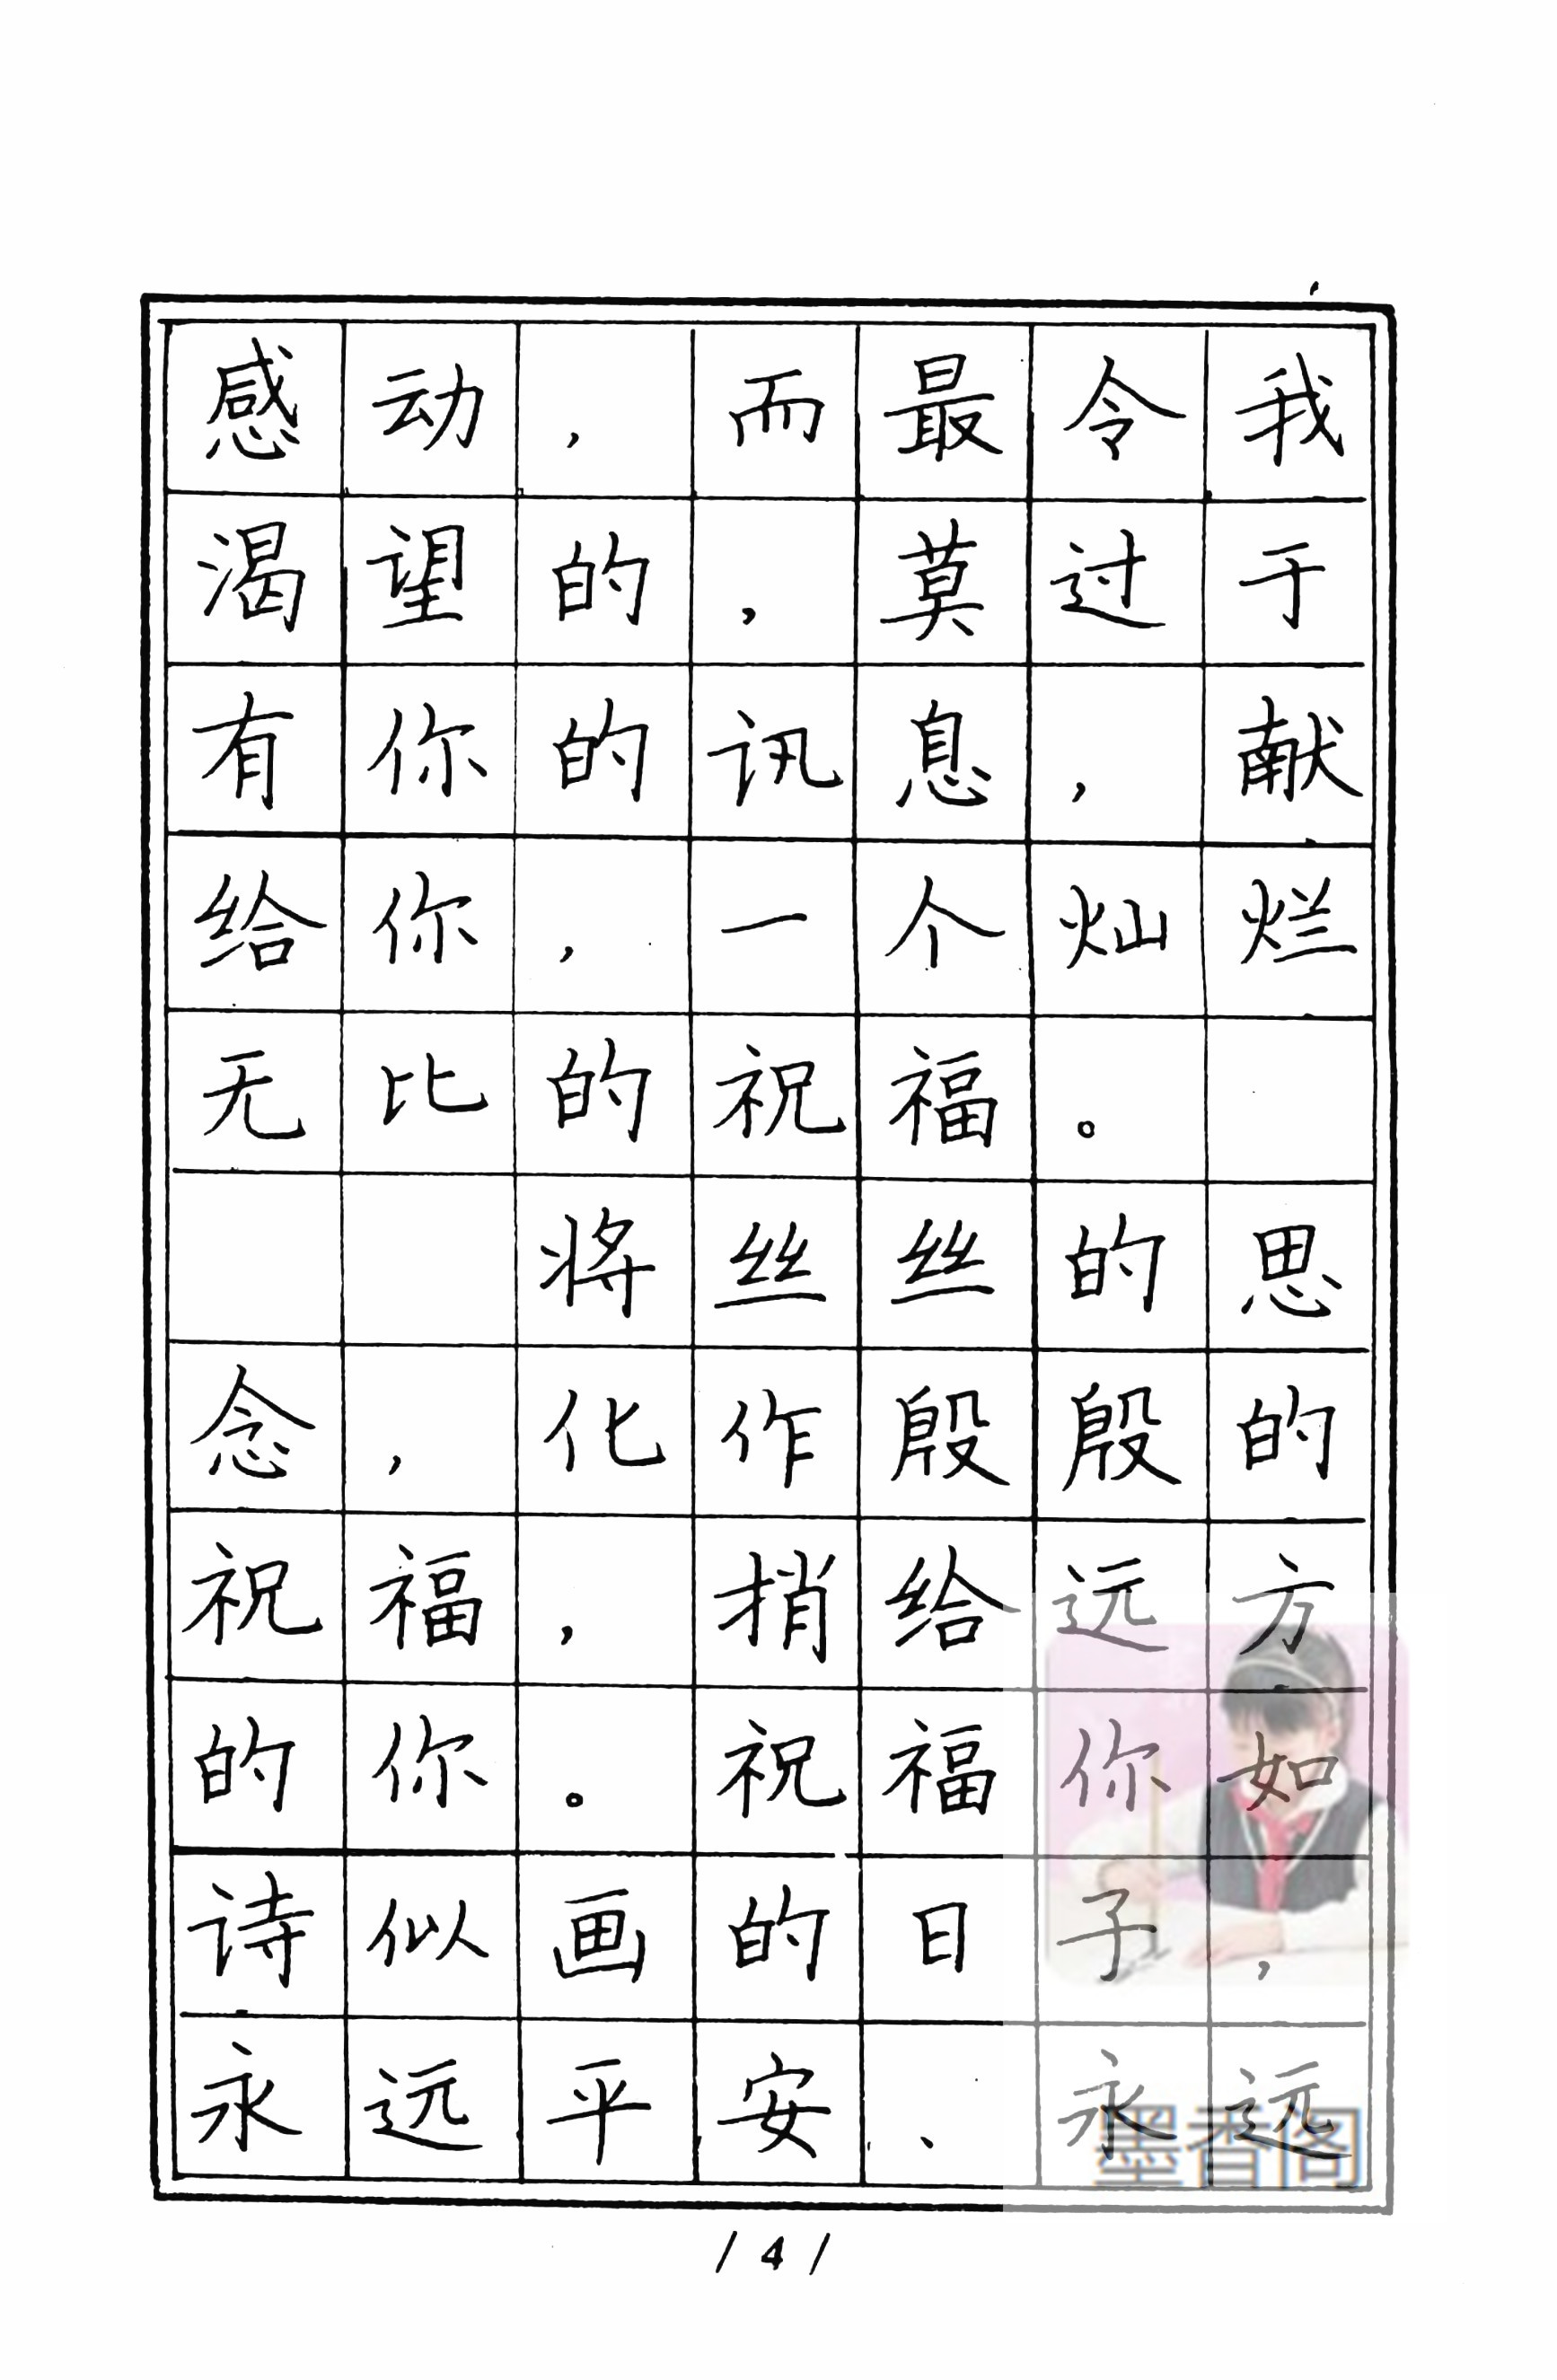 感动，而最令我
渴望的，莫过于
有你的讯息，献
给你，一个灿烂
无比的祝福。
将丝丝的思
念，化作殷殷的
祝福，捎给远方
的你。祝福你如
诗似画的日子，
永远平安、永远
墨香阁
/4/